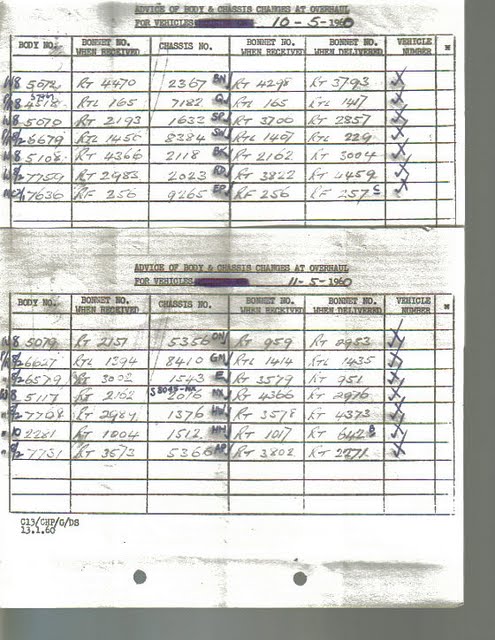 ADVICE OF BODY & CHASSIS CHANGES AT OVERHAUL
FOR VEHICLES 10-5-1960
BODY NO. BONNET NO. WHEN RECEIVED CHASSIS NO. BONNET NO. WHEN RECEIVED BONNET NO. WHEN DELIVERED VEHICLE NUMBER
W8 5072 RT 4470 2367 BN RT 4298 RT 3793
RTL 165 7182 RTL 165 RTL 1417
W8 5070 RT 2193 1633 SP RT 3700 RT 2857
6679 RTL 1456 8384 SW RTL 1407 RTL 229
W8 5108 RT 4366 2118 BK RT 2162 RT 3004
RT 2983 2023 RD RT 3822 RT 4459
7636 RF 256 9265 EP RF 256 RF 257 C
ADVICE OF BODY & CHASSIS CHANGES AT OVERHAUL
FOR VEHICLES 11-5-1960
BODY NO. BONNET NO. WHEN RECEIVED CHASSIS NO. BONNET NO. WHEN RECEIVED BONNET NO. WHEN DELIVERED VEHICLE NUMBER
W8 5079 RT 2151 5356 ON RT 959 RT 2953
6627 RTL 1394 8410 GM RTL 1414 RTL 1435
6579 RT 3002 1543 E RT 3579 RT 951
5117 RT 2162 2076 NX RT 4366 RT 2976
7708 RT 2984 1376 HW RT 3578 RT 4373
2281 RT 1004 1512 HH RT 1017 RT 642 B
7731 RT 3573 5366 AP RT 3802 RT 2271
C13/CHP/G/DS
13.1.60